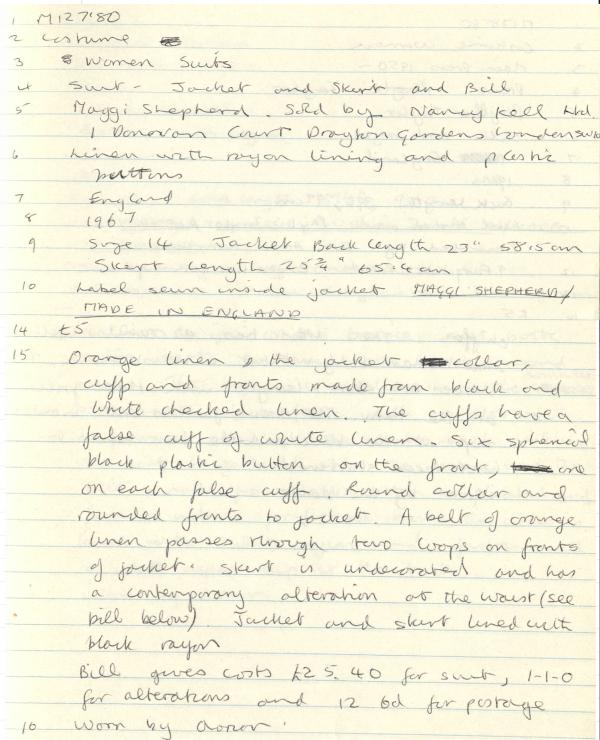 1 M127'80
2 Costume
3 Women Suits
4 Suit - Jacket and Skirt and Bill
5 Maggi Shepherd. Sold by Nancy Kell Ltd.
1 Donovan Court Drayton Gardens London SW10
6 Linen with rayon lining and plastic
buttons
7 England
8 1967
9 Size 14 Jacket Back Length 23" 58.5cm
Skirt Length 25 3/4" 65.4cm
10 Label sewn inside jacket MAGGI SHEPHERD/
MADE IN ENGLAND
14 £5
15 Orange linen, the jacket collar,
cuffs and fronts made from black and
white checked linen. The cuffs have a
false cuff of white linen. Six spherical
black plastic button on the front, one
on each false cuff. Round collar and
rounded fronts to jacket. A belt of orange
linen passes through two loops on fronts
of jacket. Skirt is undecorated and has
a contemporary alteration at the waist (see
bill below). Jacket and skirt lined with
black rayon
Bill gives costs £25.40 for suit, 1-1-0
for alterations and 12 6d for postage
16 Worn by donor.